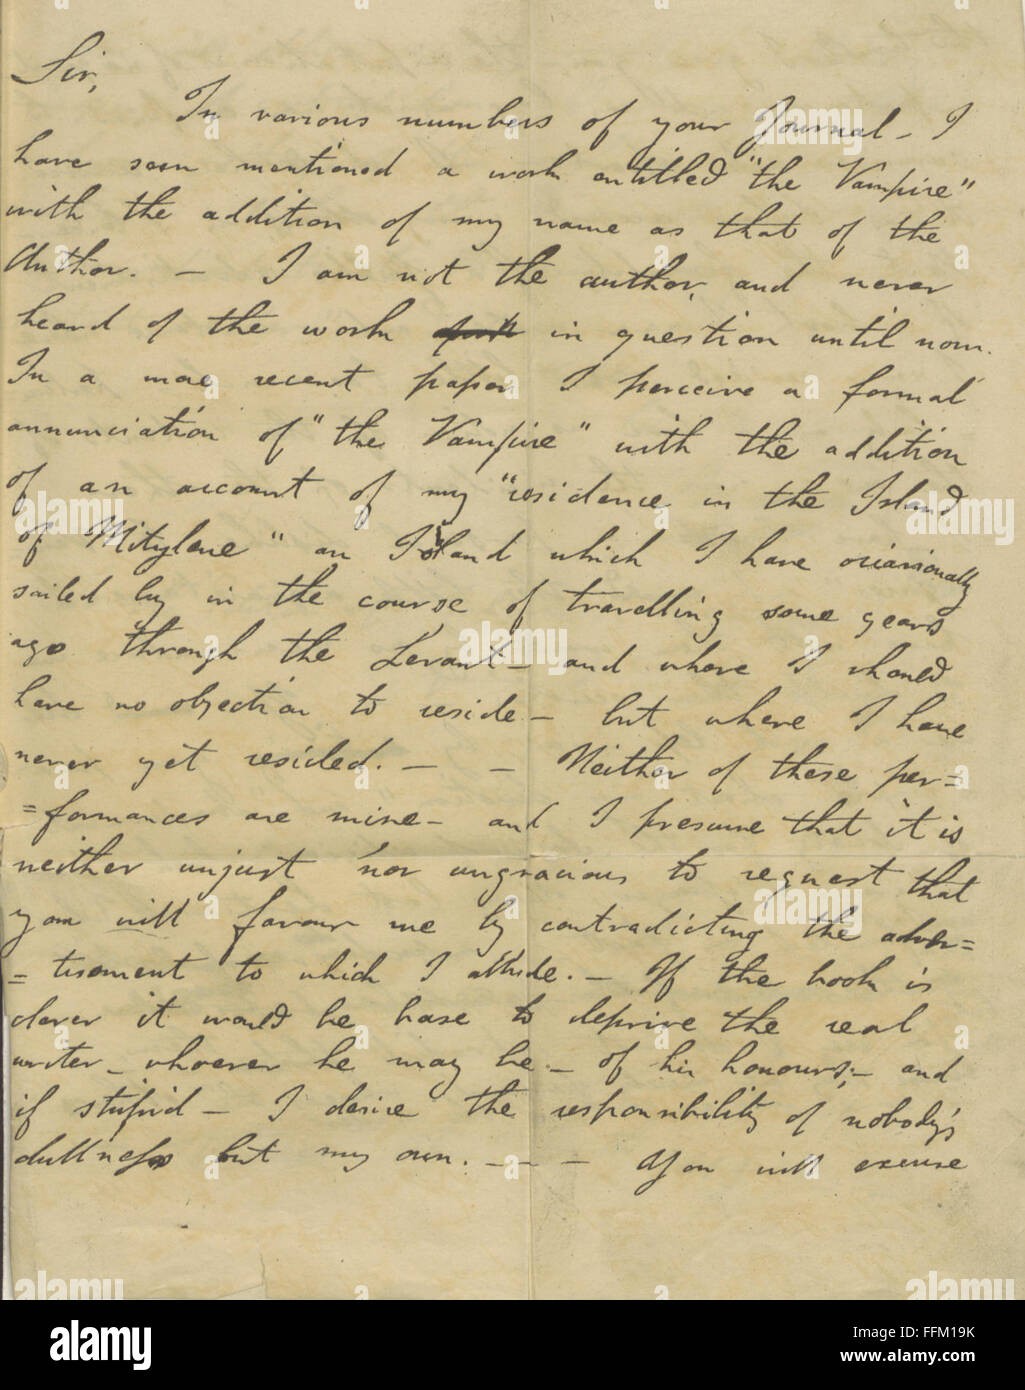 Sir,
In various numbers of your Journal – I
have seen mentioned a work entitled "the Vampire"
with the addition of my name as that of the
Author. – I am not the author, and never
heard of the work in question until now.
In a more recent paper I perceive a formal
annunciation of "the Vampire" with the addition
of an account of my "residence in the Island
of Mitylene" an Island which I have occasionally
sailed by in the course of travelling some years
ago through the Levant – and where I should
have no objection to reside – but where I have
never yet resided. – – Neither of these per=
=formances are mine – and I presume that it is
neither unjust nor ungracious to request that
you will favour me by contradicting the adver=
=tisement to which I allude. – If the book is
clever it would be base to deprive the real
writer – whoever he may be – of his honours; – and
if stupid – I desire the responsibility of nobody's
dullness but my own. – – – You will excuse
alamy
www.alamy.com
Image ID: FFM19K